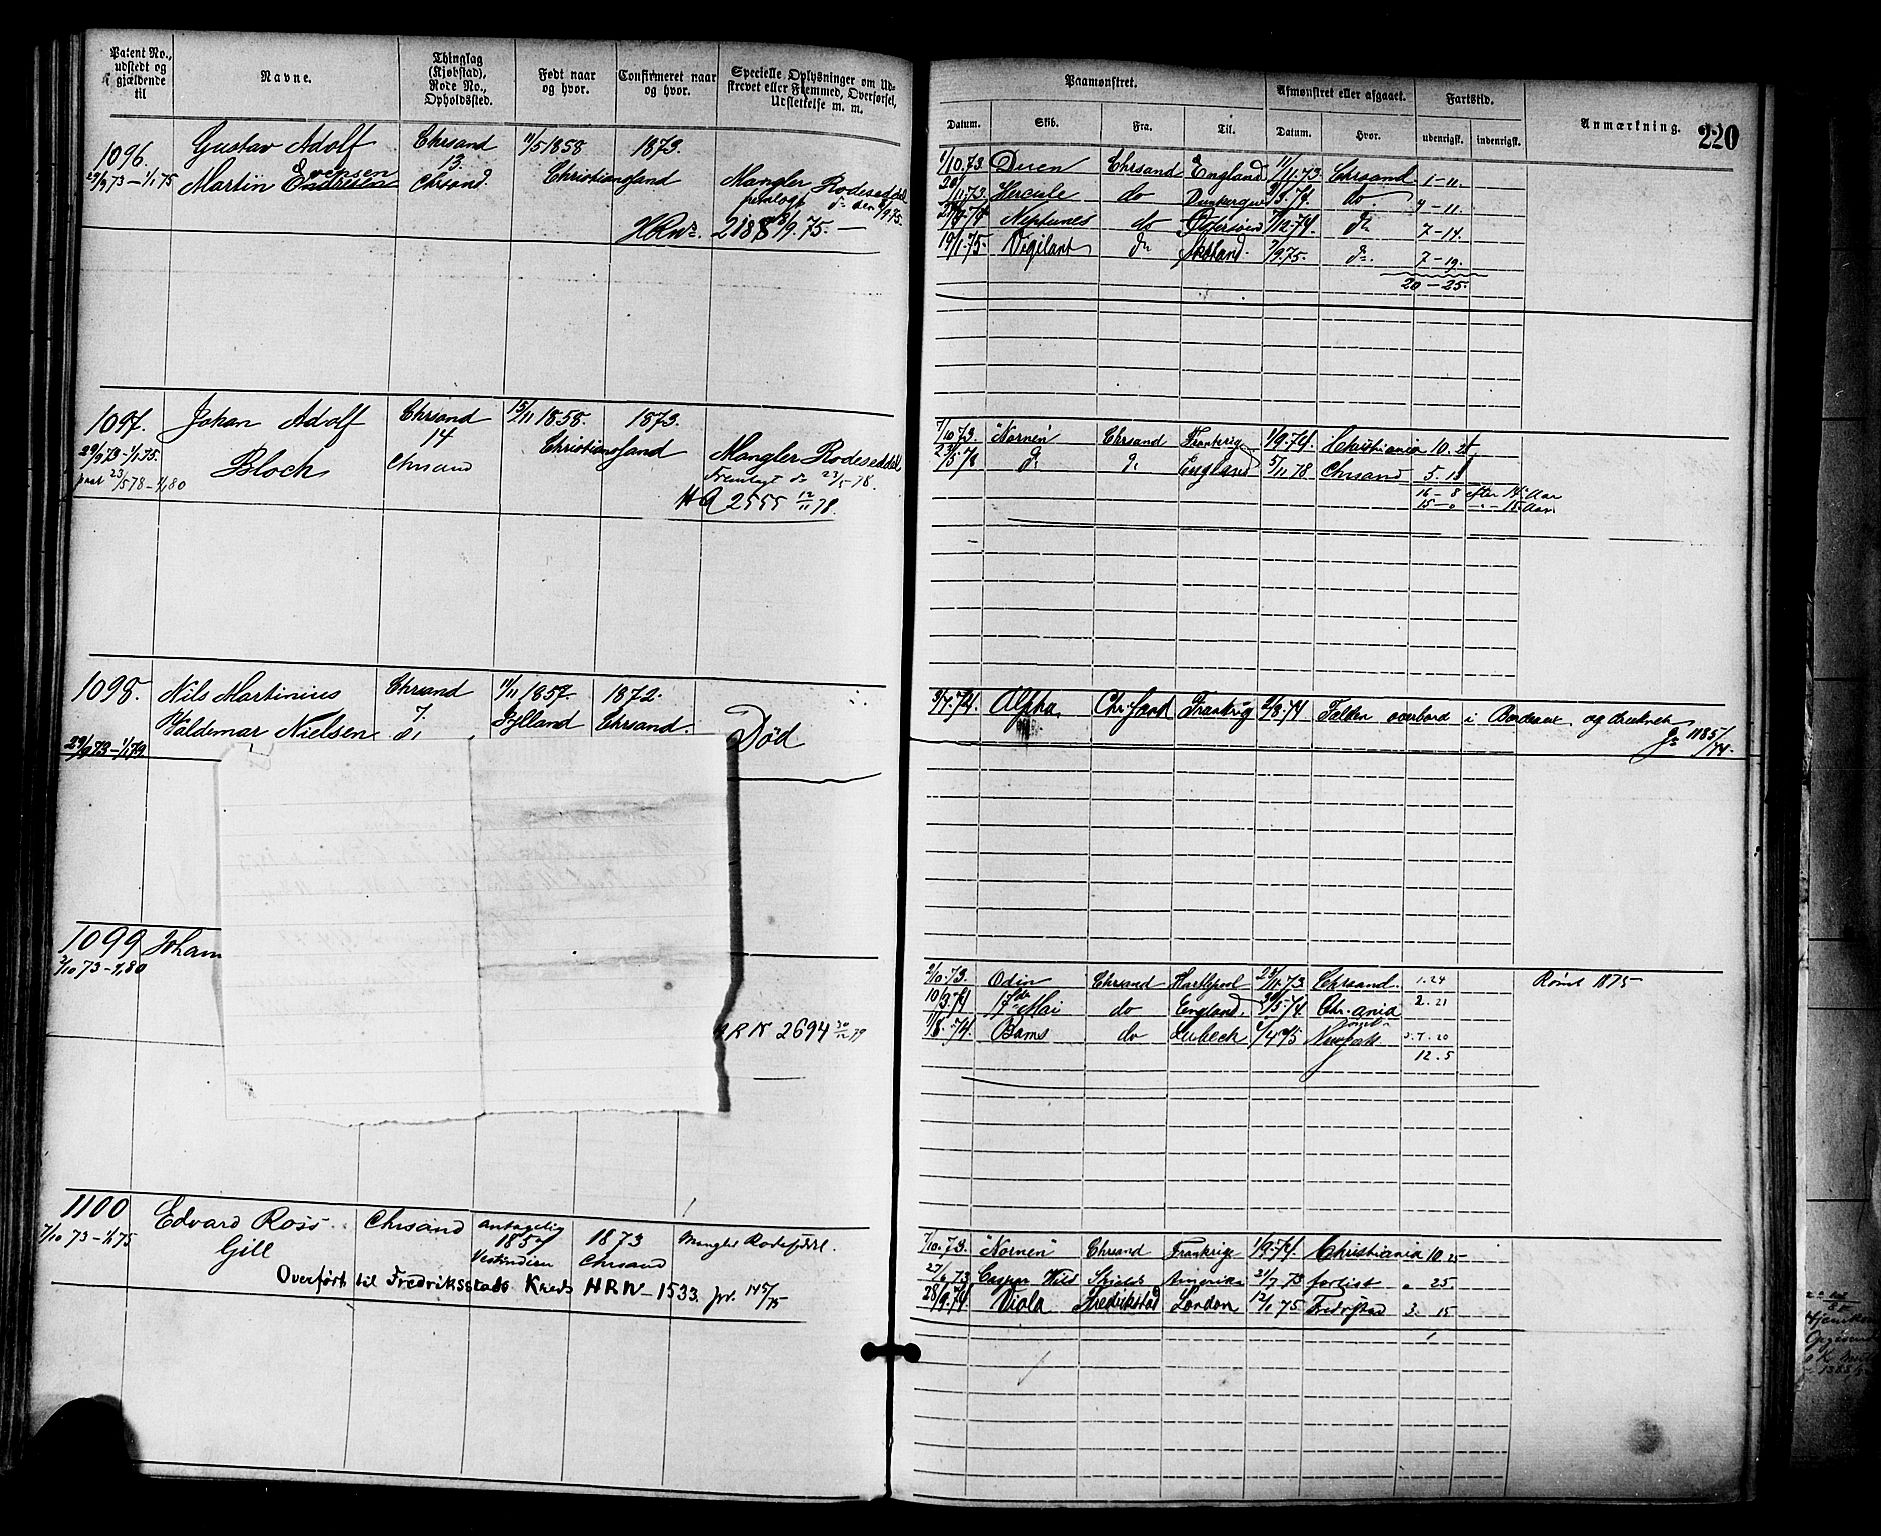 Patent No., udstedt og gjældende til
Navne.
Thinglag (Kjøbstad), Rode No., Opholdssted.
Født naar og hvor.
Confirmeret naar og hvor.
Specielle Oplysninger om Udskrevet eller Fremmed, Overførsel, Udslettelse m. m.
Paamønstret.
Afmønstret eller afgaaet.
Fartstid.
Anmærkning.
220
Datum. Skib. Fra. Til. Datum. Hvor. udenrigsk. indenrigsk.
1096. Gustav Adolf Chrsand 11/5 1858 1873.
29/9 73 – 1/1 75 Martin Evensen 13. Chrsand. Christianssand Mangler Rodeseddel
HRN 2188 8/9. 75.
1/10. 73. Chrsand England 11/11. 73. Chrsand 1–11.
Hercule do Dunkerque do. 4–11.
Neptunus do 7–14.
19/1. 75. Vigilant do 7/9 75. do. 7–19.
20–25.
1097. Johan Adolf Chrsand 15/11 1858. 1873.
29/9 73 – 1/1 75. Bloch 14 Chrsand Christianssand Mangler Rodeseddel
23/5 78 – 1/1 80 Fremlagt do 23/5 78.
HR 2555 12/11 78.
7/10 73. "Nornen" Chrsand Frankrig 1/9. 74. Christiania 10. 24
23/5 78 do do England 5/11 78 Chrsand 5. 18
16–8 efter 14 Aar
15–0 – " – 15 Aar
1098. Nils Martinius Chrsand 11/11 1857. 1872.
Valdemar Nielsen 7. do Jylland Chrsand. Død
29/9 73 – 1/1 79
3/7. 74. Alpha Chr. sand Frankrig 2/9. 74 Falden overbord i Bordeaux og druknet
Jr 1185/74.
1099 Johan
2/10 73 – 1/1 80
HRN 2694 30/12 79
2/10. 73. Odin Chrsand Hartlepool 23/11. 73 Chrsand. 1. 24 Rømt 1875
10/3. 74 17de Mai do England. Chr. ania 2. 21
11/8. 74. Bams do Lubeck 2/4 75 rømt i Newyork 7. 20
12. 5
1100 Edvard Ross Chrsand antagelig 1873 Mangler Rodesedel.
7/10 73 – 1/1 75 Gill 1857 Vestindien Chrsand
Overført til Fredriksstads Kreds HRN – 1533. jvr. 145/75
7/10. 73. "Nornen" Chrsand Frankrige 1/9. 74. Christiania 10. 25
27/6 73 Casper Wild Shields Amerika 21/7 73 forlist " 25
28/9. 74. Viola Fredrikstad London 12/1 75 Fredrikstad 3. 15